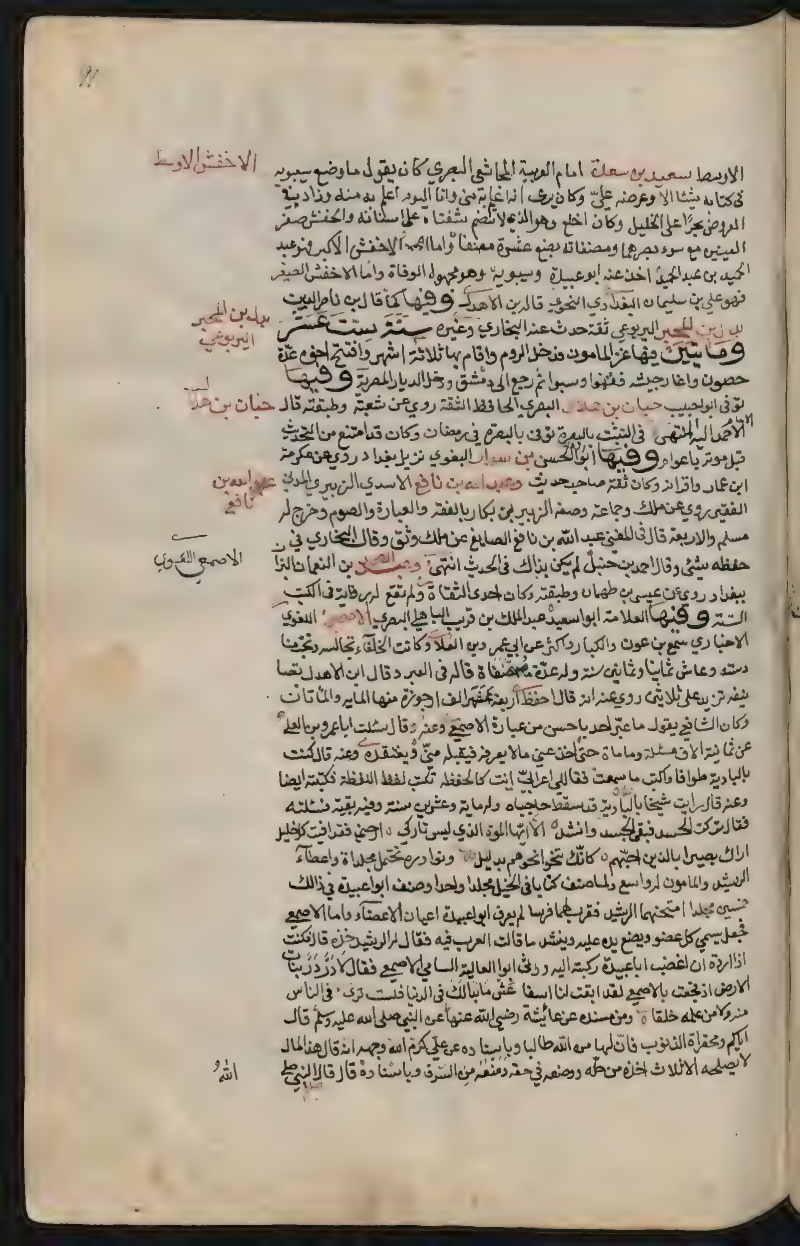 الاخفش الاوسط
الاوسط سعيد بن سعدة امام العربية المجاشعي البصري كان يقول ما وضع سيبويه
في كتابه شيئا الا وعرضه عليّ وكان يرى انه اعلم به مني وانا اليوم اعلم به منه وزاد في
العروض بحرًا على الخليل وكان اجلع وهو الذي لا تنضم شفتاه على اسنانه والخفش صغر
العينين مع سوء بصرهما ومصنفاته بضع عشرة مصنفا واما الاخفش الاكبر فهو عبد
الحميد بن عبد المجيد اخذ عنه ابو عبيدة وسيبويه وهو مجهول الوفاة واما الاخفش الصغير
فهو علي بن سليمان البغدادي النحوي قاله بن الاهدل وفيها كما قال بن ناصر الدين
بدل بن المحبر اليربوعي ثقة حدث عنه البخاري وغيره سنة ست عشر
بدل بن المحبر
اليربوعي
ومايتين فيها غزا المامون فدخل الروم واقام بها ثلاثة اشهر وافتتح اخوه عدة
حصون واغار جيشه فغنموا وسبوا ثم رجع الى دمشق ودخل الديار المصرية وفيها
توفي ابو حبيب حبان بن هلال البصري الحافظ الثقة روى عن شعبة وطبقته قال
حبان بن هلال
الامام احمد اليه المنتهى في التثبت بالبصرة توفي بالبصرة في رمضان وكان قد امتنع من التحديث
قبل موته باعوام وفيها ابو الحسن بن سوار البغوي نزيل بغداد روى عن عكرمة
ابن عمار واقرانه وكان ثقة صاحب حديث وعبد الله بن نافع الاسدي الزبيري المدني
عبد الله بن
نافع
الفقيه روى عن ملك وجماعة وصفه الزبير بن بكار بالفقه والعبارة والصوم وخرج له
مسلم والاربعة قال في المغني عبد الله بن نافع الصايغ عن ملك وثق وقال البخاري في
حفظه شيئ وقال احمد بن حنبل لم يكن بذاك في الحديث انتهى وعبد الصمد بن النعمان البزا
الاصمعي اللغوي
ببغداد روى عن عيسى بن طهمان وطبقته وكان احدى الثقاة ولم تقع له رواية في الكتب
الستة وفيها العلامة ابو سعيد عبد الملك بن قريب الباهلي البصري الاصمعي اللغوي
الاخباري سمع بن عون والكبار واكثر عن ابي عمرو بن العلا وكانت الخلفاء تجالسه وتحب منا
دمته وعاش ثمانيا وثمانين سنة وله عدة مصنفاة قاله في العبر وقال ابن الاهدل تصا
نيفه تزيد على ثلاثين روى عنه انه قال احفظ اربعة عشر الف ارجوزة منها المايه والماتان
وكان الشافعي يقول ما عبّر احد باحسن من عبارة الاصمعي وعنه وقال سئلت ابا عمرو بن العلا
عن ثمانية الاف مسئلة وما مات حتى اخذ عني مالا يعرفه فيقبله منّي ويعتقده وعنه قال كنت
بالبادية طوافا واكتب ما سمعت فقال لي اعرابي انت كالحفظة تكتب لفظ اللفظة فكتبته ايضا
وعنه قال رايت شيخا بالبادية قد سقط حاجباه وله ماية وعشرين سنة وفيه بقية فسئلته
فقال تركت الحسد فبقي الجسد وانشد الا ايها الموت الذي ليس تاركي ارحني فقد افنيت كل خليل
اراك بصيرا بالذين احبهم كانّك تنحو نحوهم بدليل ونوادره تحتمل مجلداة واعطاء
الرشيد والمامون له واسع ولما صنف كتابا في الخيل مجلدا واحدا وصنف ابو عبيدة في ذالك
خمسين مجلدا امتحنهما الرشيد فقرب لهما فرسا لم يعرف ابو عبيدة اعيان الاعضاء واما الاصمعي
فجعل يسمي كل عضو ويضع يده عليه وينشد ما قالت العرب فيه فقال له الرشيد خذه قال فكنت
اذا اردة ان اغضب ابا عبيدة ركبته اليه ورثى ابو العالية السامي الاصمعي فقال لا در در بنات
الارض اذ فجعت بالاصمعي لقد ابقت لنا اسفا عش ما بدا لك في الدنيا فلست ترى في الناس
منه ولا من علمه خلفا ومن مسنده عن عايشة رضي الله عنها عن النبي صلى الله عليه وسلم قال
اياكم ومحقراة الذنوب فان لها من الله طالبا وباسناده عن علي كرم الله وجهه انه قال هذا المال
لا يصلحه الا ثلاث اخذه من حله ووضعه في حقه ومنعه من السرف وباسناده قال قال النبي صلى
الله